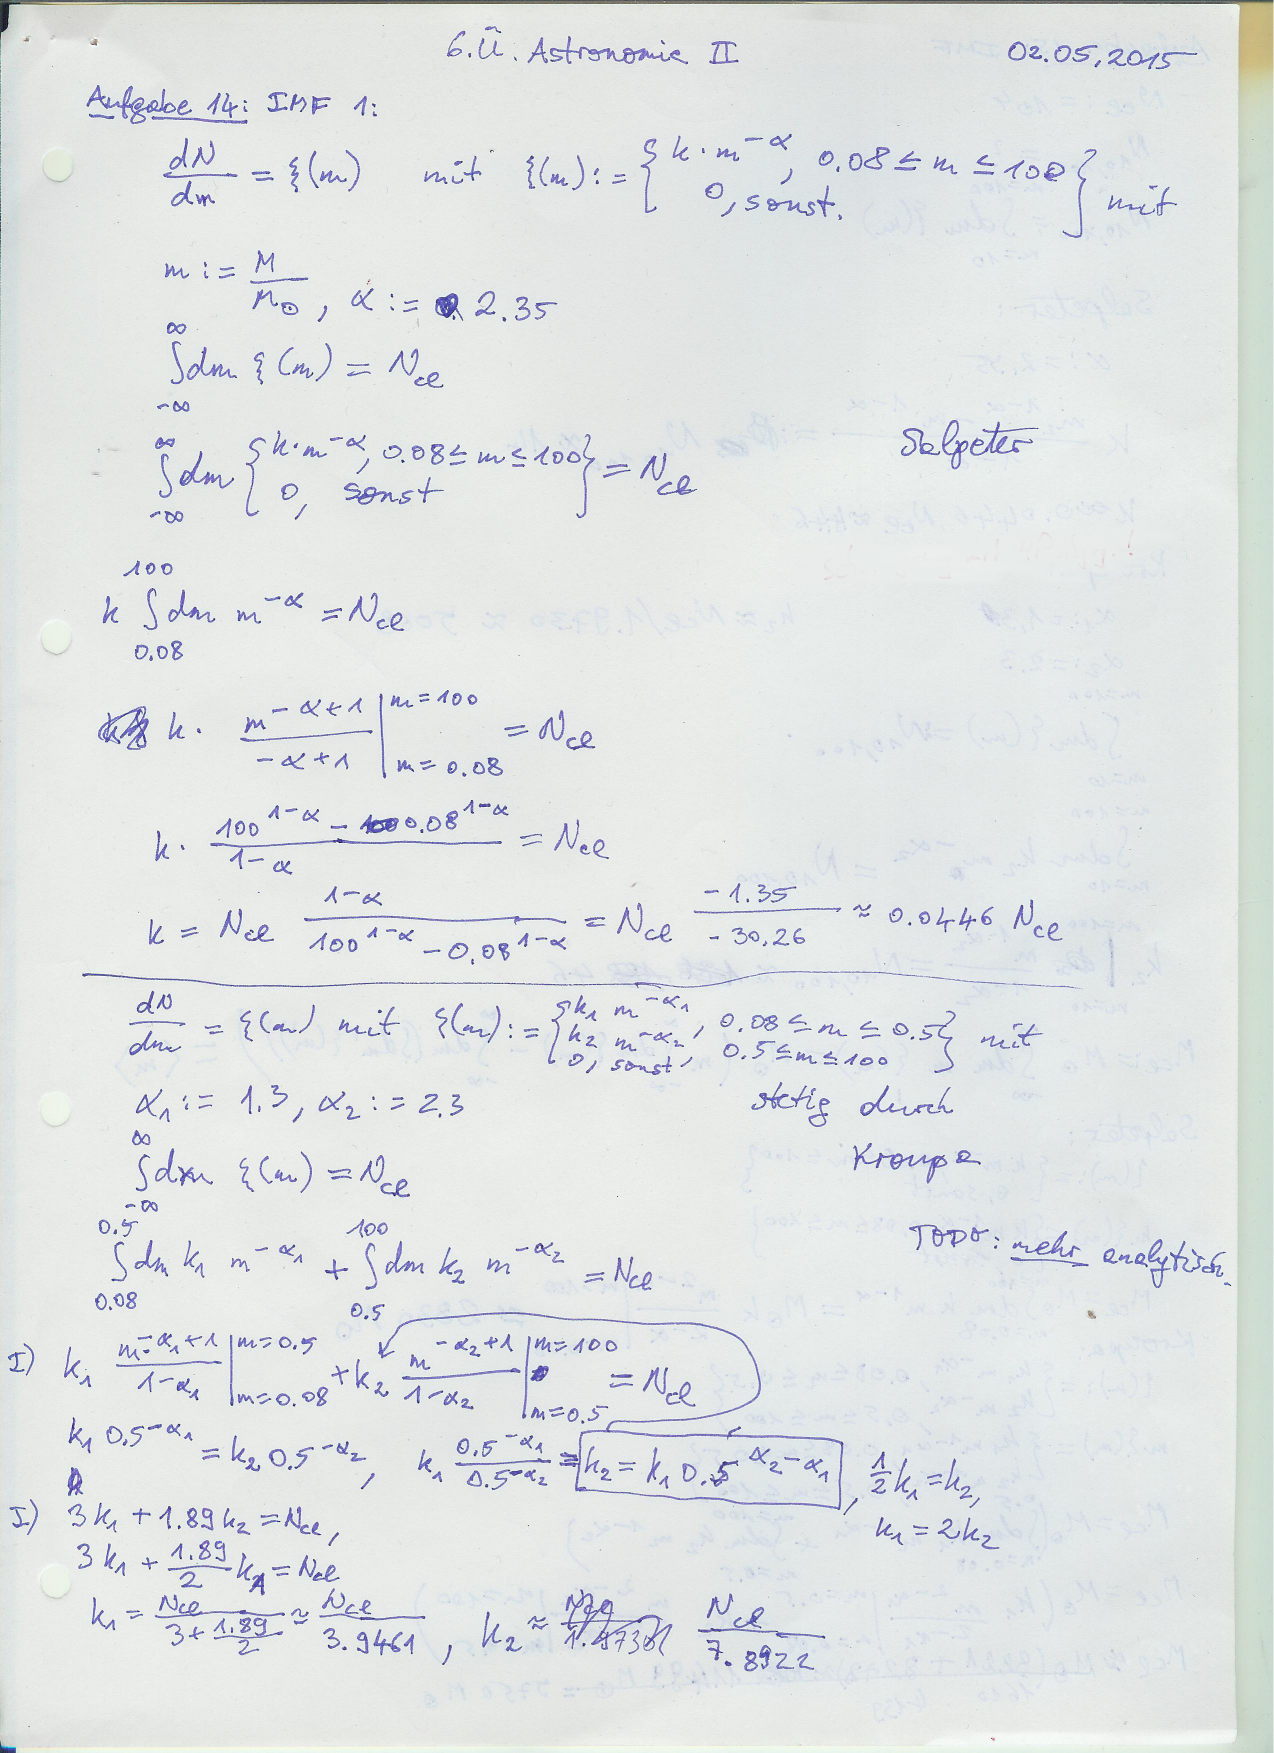 6.Ü. Astronomie II 02.05.2015
Aufgabe 14: IMF 1:
dN/dm = ξ(m) mit ξ(m) := { k · m^-α, 0.08 ≤ m ≤ 100
0, sonst. } mit
m := M/M⊙, α := 2.35
∫_-∞^∞ dm ξ(m) = N_cl
∫_-∞^∞ dm { k·m^-α, 0.08 ≤ m ≤ 100
0, sonst } = N_cl Salpeter
k ∫_0.08^100 dm m^-α = N_cl
k · m^(-α+1)/(-α+1) |_(m=0.08)^(m=100) = N_cl
k · (100^(1-α) - 0.08^(1-α))/(1-α) = N_cl
k = N_cl (1-α)/(100^(1-α) - 0.08^(1-α)) = N_cl (-1.35)/(-30.26) ≈ 0.0446 N_cl
dN/dm = ξ(m) mit ξ(m) := { k₁ m^-α₁, 0.08 ≤ m ≤ 0.5
k₂ m^-α₂, 0.5 ≤ m ≤ 100
0, sonst } mit
α₁ := 1.3, α₂ := 2.3 stetig durch
∫_-∞^∞ dm ξ(m) = N_cl Kroupa
TODO: mehr analytisch.
∫_0.08^0.5 dm k₁ m^-α₁ + ∫_0.5^100 dm k₂ m^-α₂ = N_cl
I) k₁ m^(-α₁+1)/(1-α₁) |_(m=0.08)^(m=0.5) + k₂ m^(-α₂+1)/(1-α₂) |_(m=0.5)^(m=100) = N_cl
k₁ 0.5^-α₁ = k₂ 0.5^-α₂, k₁ 0.5^-α₁/0.5^-α₂ = k₂ = k₁ 0.5^(α₂-α₁), 1/2 k₁ = k₂,
k₁ = 2k₂
I) 3k₁ + 1.89k₂ = N_cl,
3k₁ + 1.89/2 k₁ = N_cl
k₁ = N_cl/(3 + 1.89/2) ≈ N_cl/3.9461, k₂ ≈ N_cl/7.8922